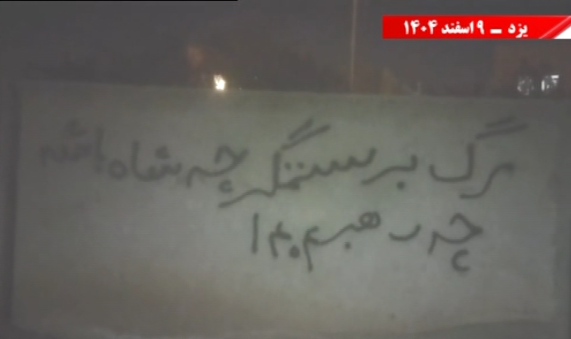 یزد – ۹ اسفند ۱۴۰۴
مرگ بر ستمگر چه شاه باشه
چه رهبر